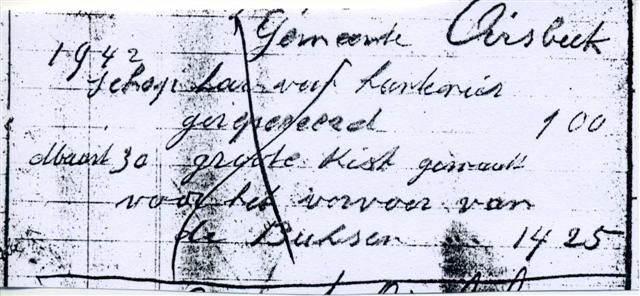 Gemeente Oirsbeek
1942
schop houweel kantonier
gerepareerd 1 00
Maart 30 groote Kist gemaakt
voor het vervoer van
de Buksen ... 14 25